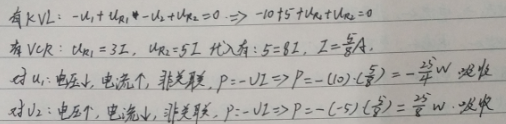 有KVL: -u₁+u_{R1}-u₂+u_{R2}=0 ⇒ -10+5+u_{R1}+u_{R2}=0
有VCR: u_{R1}=3I, u_{R2}=5I 代入有: 5=8I, I=5/8 A.
对u₁: 电压↓, 电流↑, 非关联, P=-UI ⇒ P=-(10)·(5/8)=-25/4 W 吸收
对u₂: 电压↑, 电流↓, 非关联, P=-UI ⇒ P=-(-5)(5/8)=25/8 W. 吸收